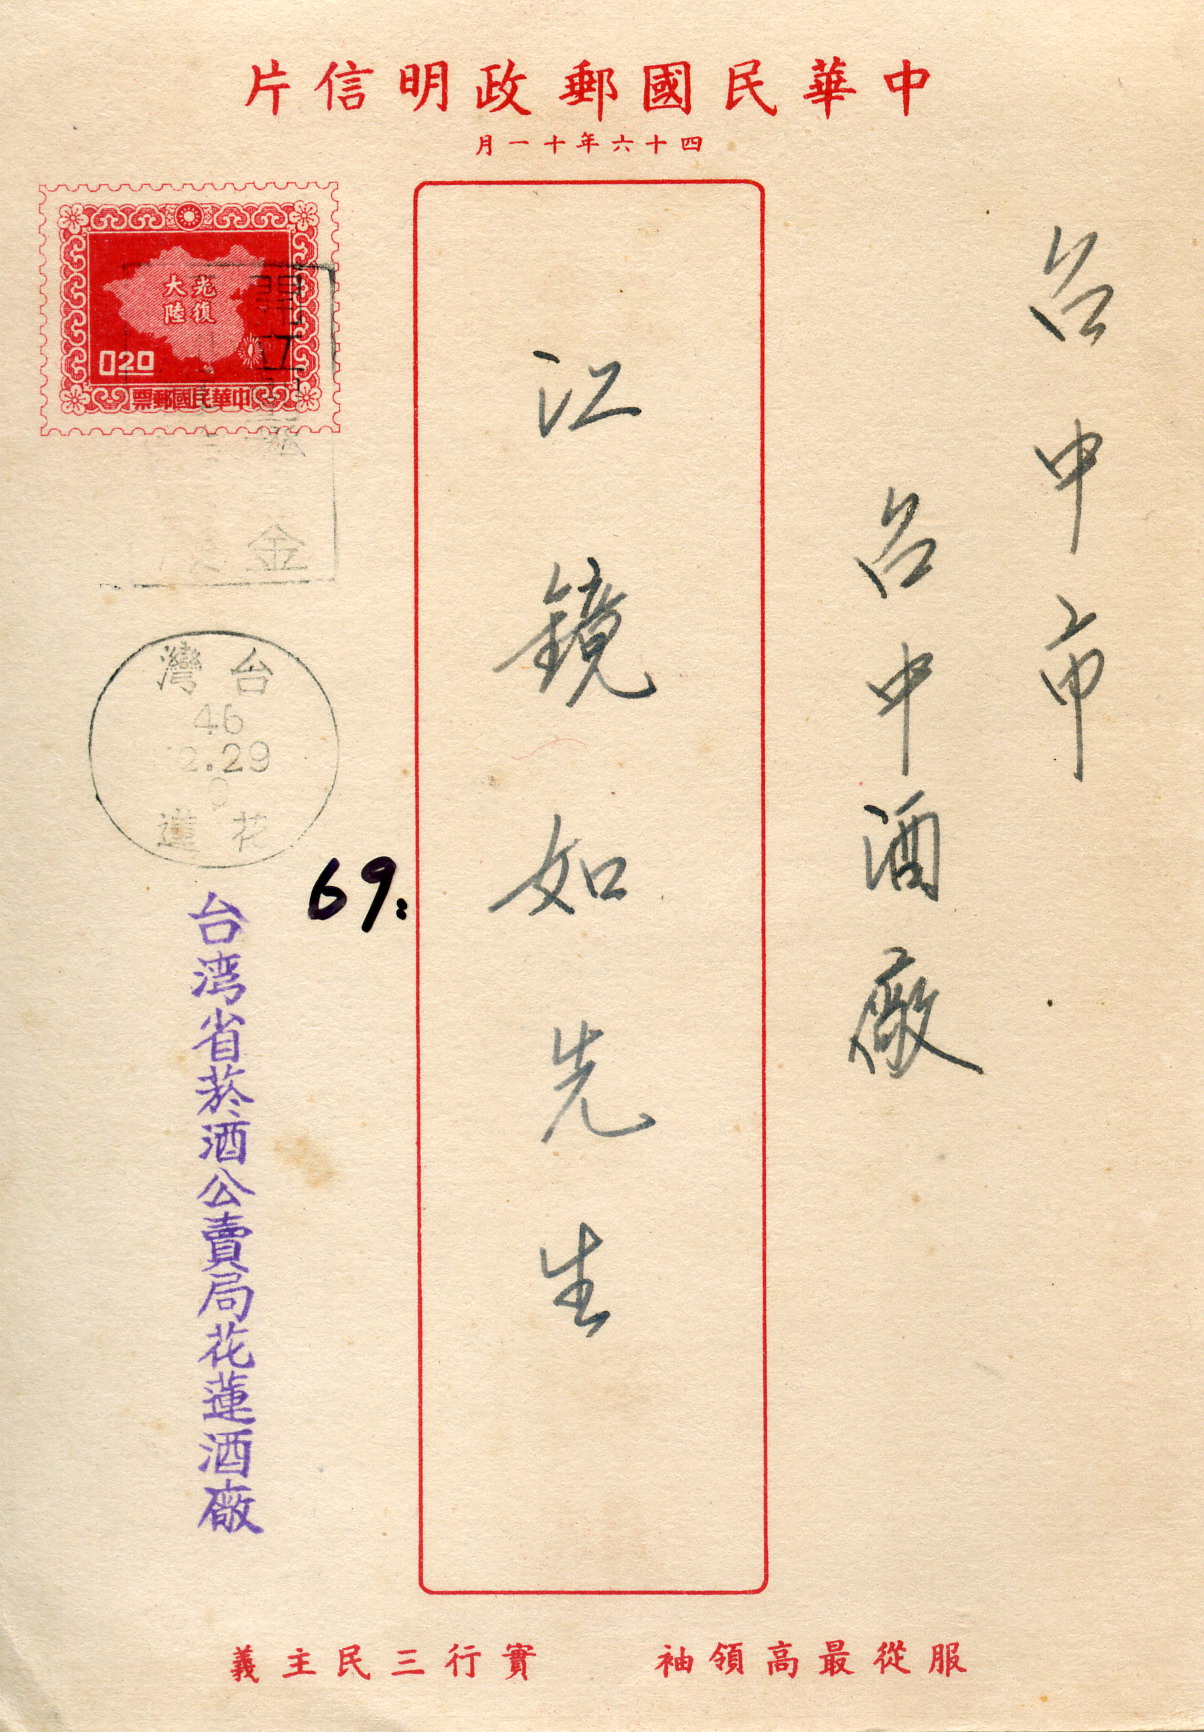 中華民國郵政明信片
四十六年十一月
台中市
台中酒廠
江鏡如先生
光復
大陸
0.20
中華民國郵票
金
台灣
46
2.29
花蓮
69:
台湾省菸酒公賣局花蓮酒廠
服從最高領袖 實行三民主義